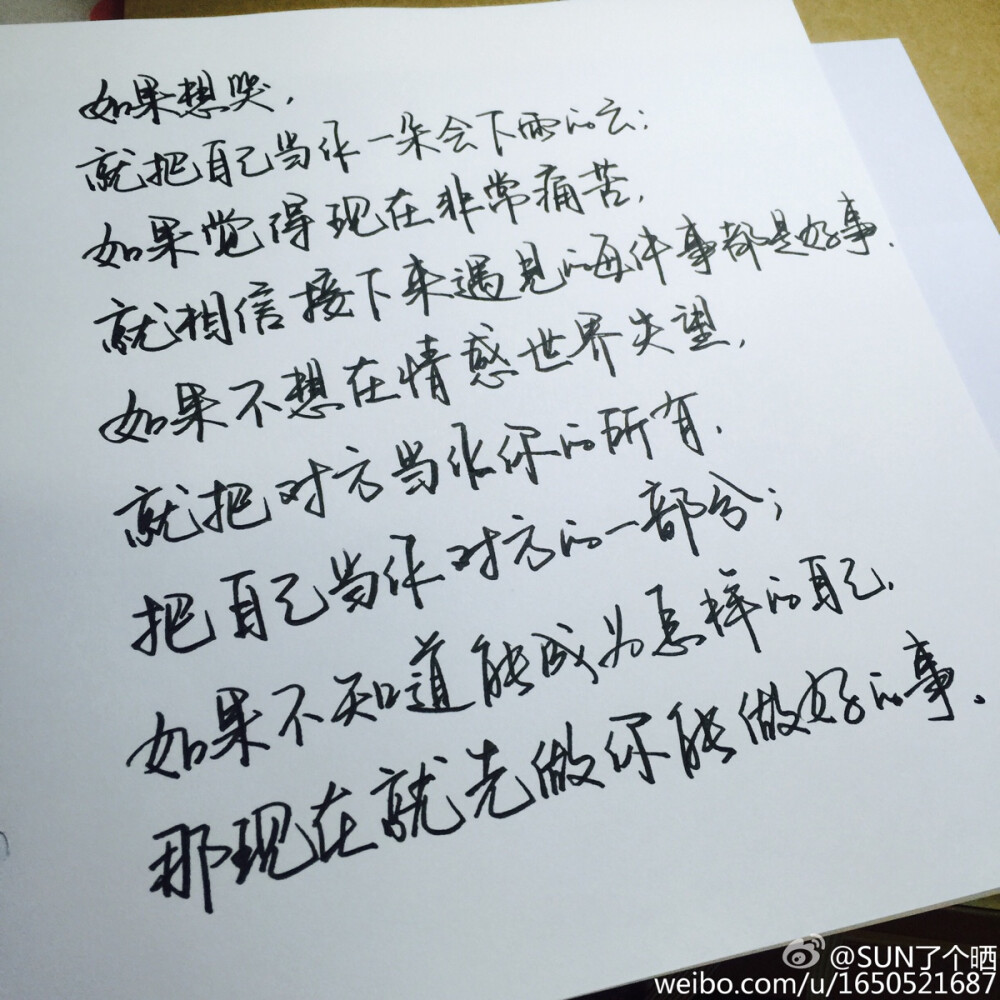 如果想哭，
就把自己当作一朵会下雨的云；
如果觉得现在非常痛苦，
就相信接下来遇见的每件事都是好事.
如果不想在情感世界失望，
就把对方当作你的所有，
把自己当作对方的一部分；
如果不知道能成为怎样的自己，
那现在就先做你能做好的事。
@SUN了个晒
weibo.com/u/1650521687